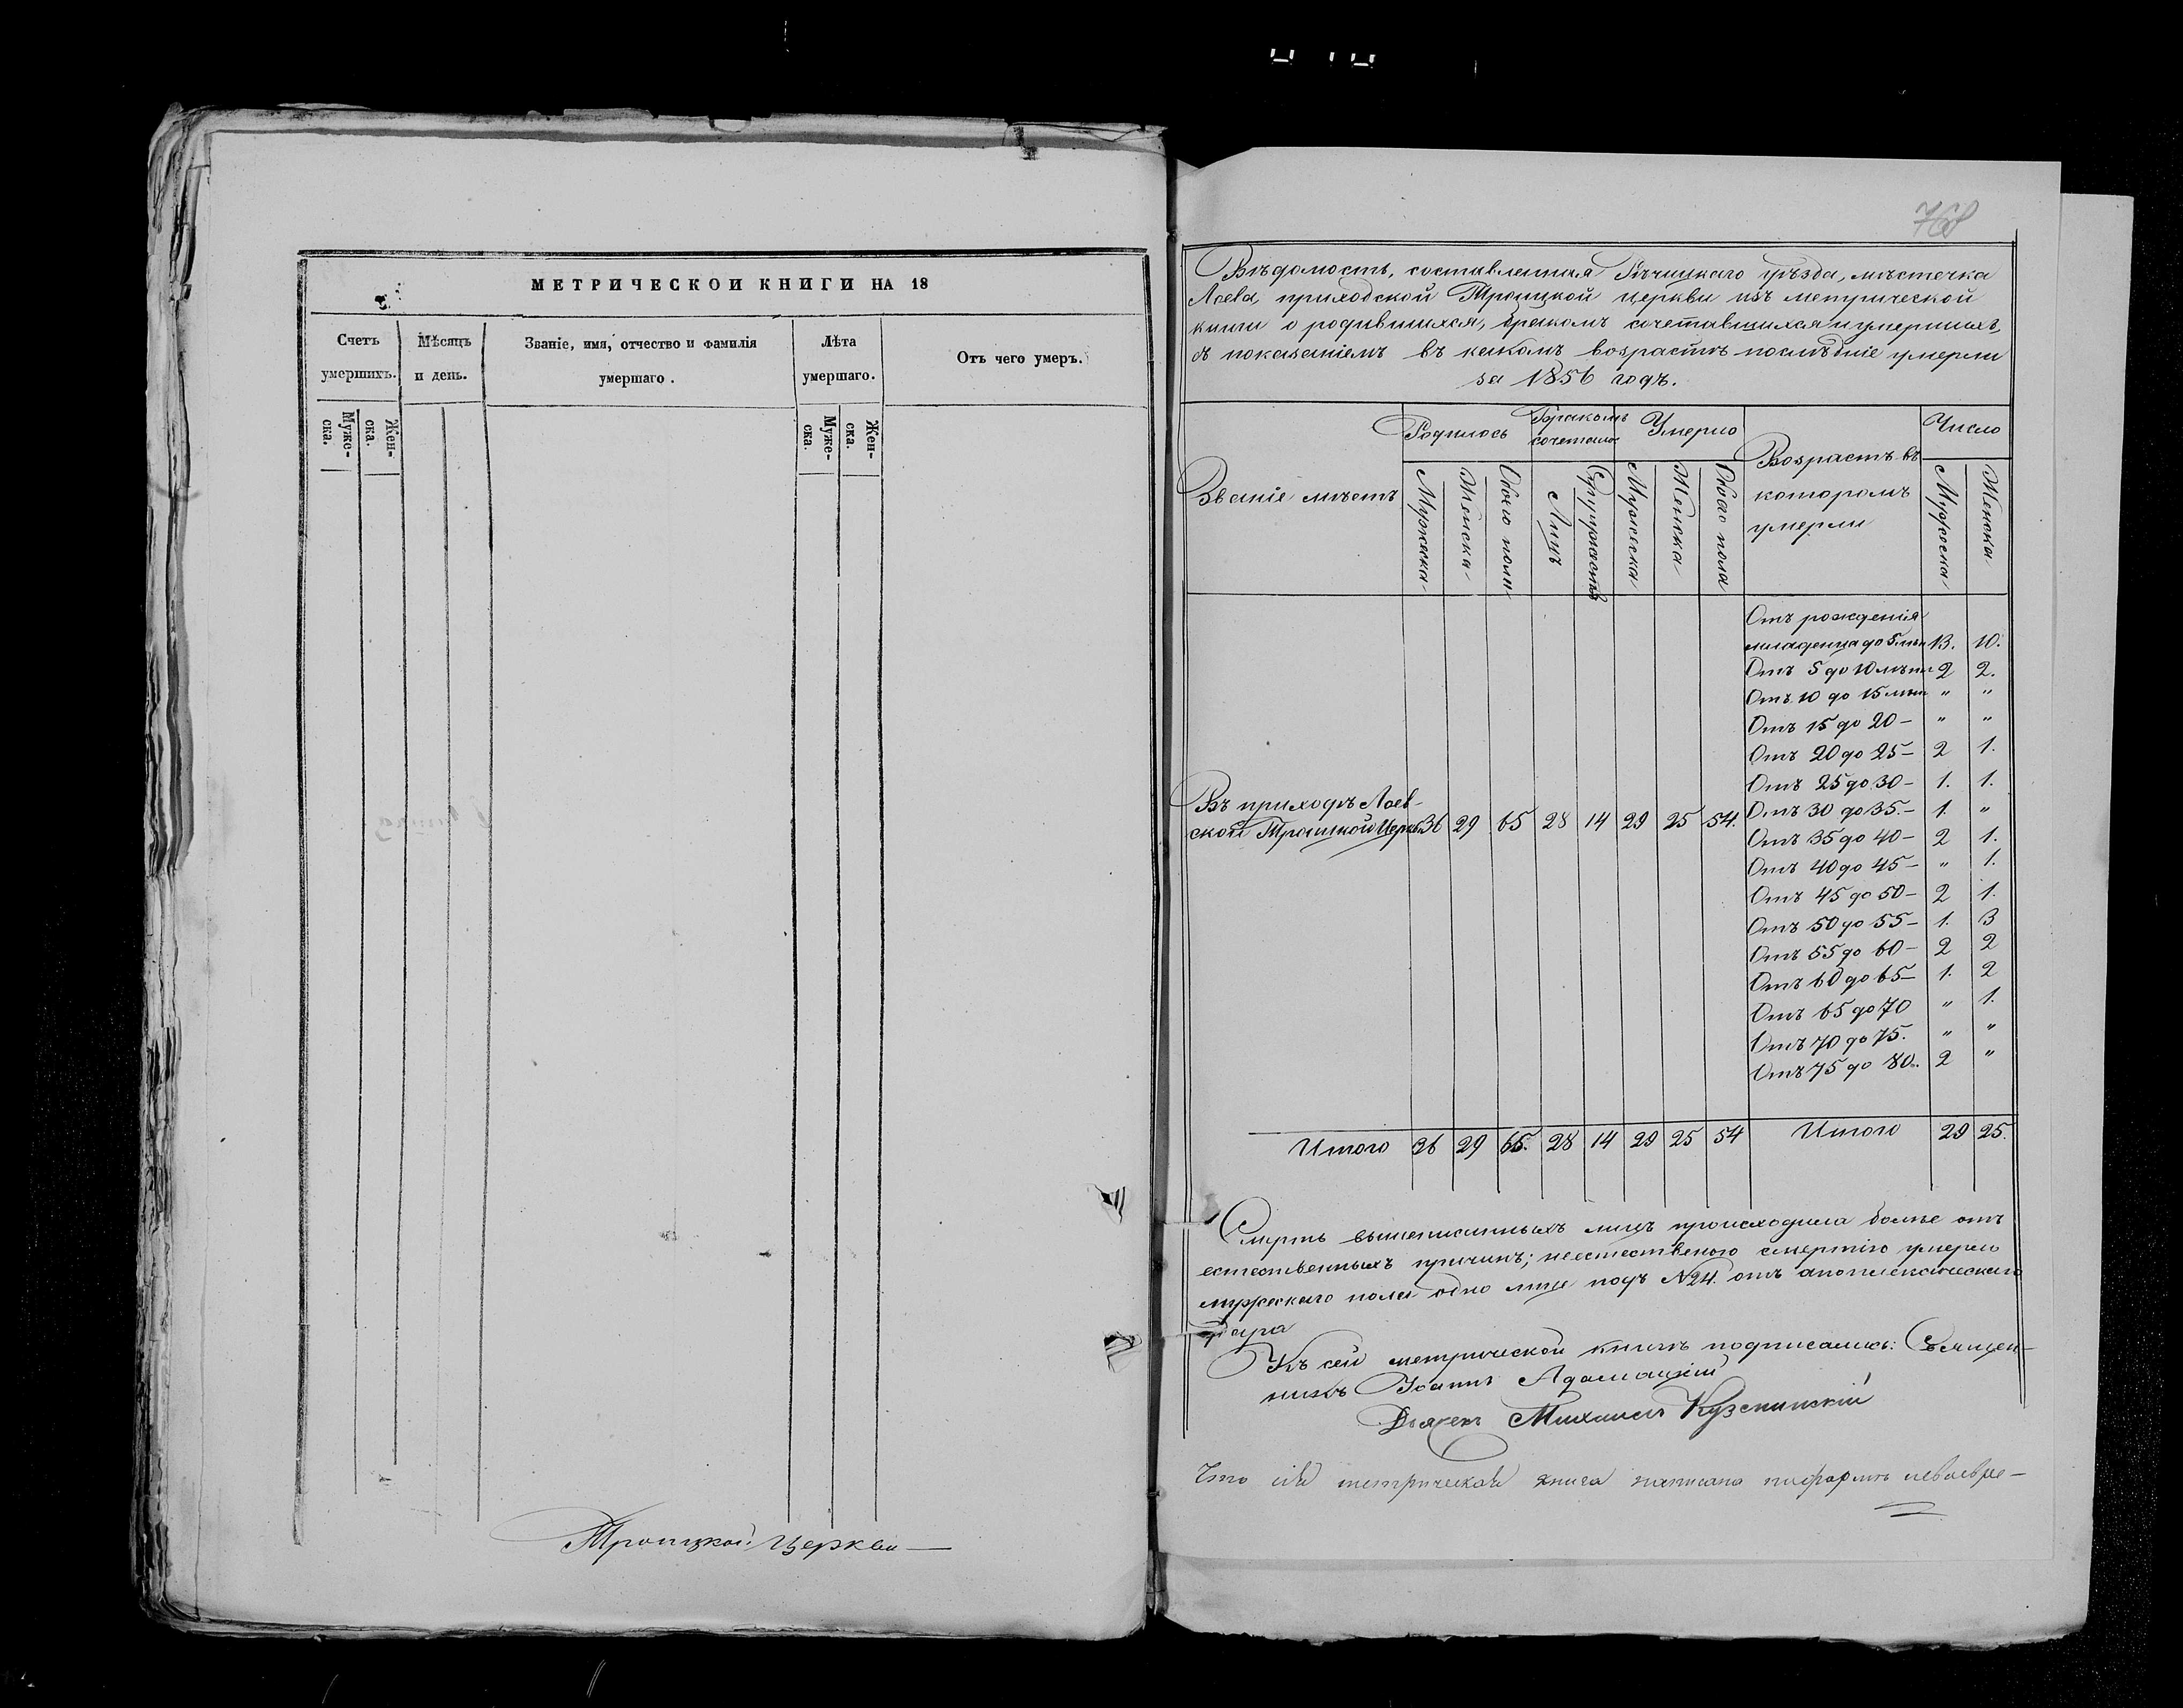 МЕТРИЧЕСКОИ КНИГИ НА 18
Счетъ умершихъ.
Мѣсяцъ и день.
Званіе, имя, отчество и фамилія умершаго.
Лѣта умершаго.
Отъ чего умеръ.
Муже-ска.
Жен-ска.
Муже-ска.
Жен-ска.
Троицкой Церкви —
768
Вѣдомость, составленная Рѣчицкаго уѣзда, мѣстечка
Лоева, приходской Троицкой церкви изъ метрической
книги о родившихся, бракомъ сочетавшихся и умершихъ,
съ показаніемъ въ какомъ возрастѣ послѣдніе умерли
за 1856 годъ.
Званіе мѣстъ
Родилось
Бракомъ сочеталось
Умерло
Возрастъ въ которомъ умерли
Число
Мужеска
Женска
Обоего пола
Лицъ
Супружествъ
Мужеска
Женска
Обоего пола
Мужеска
Женска
Отъ рожденія
младенца до 5 лѣтъ 13. 10.
Отъ 5 до 10 лѣтъ 2 2.
Отъ 10 до 15 лѣтъ " "
Отъ 15 до 20 — " "
Отъ 20 до 25 — 2 1.
Отъ 25 до 30 — 1. 1.
Отъ 30 до 35. — 1. "
Отъ 35 до 40 — 2 1.
Отъ 40 до 45 — " 1.
Отъ 45 до 50 — 2 1.
Отъ 50 до 55 — 1. 3
Отъ 55 до 60 — 2 2
Отъ 60 до 65 — 1. 2
Отъ 65 до 70 " 1.
Отъ 70 до 75. " "
Отъ 75 до 80. 2 "
Въ приходѣ Лоев-
ской Троицкой Церкви 36 29 65 28 14 29 25 54.
Итого 36 29 65. 28 14 29 25 54 Итого 29 25.
Смерть вышеписанныхъ лицъ происходила болѣе отъ
естественныхъ причинъ; неестественою смертію умерло
мужескаго пола одно лице подъ №24. отъ апоплексическаго
удара
Къ сей метрической книгѣ подписались: Священ-
никъ Іоаннъ Адамацкій
Дьячекъ Михаилъ Куземинскій
Что сія метрическая книга написана по формѣ